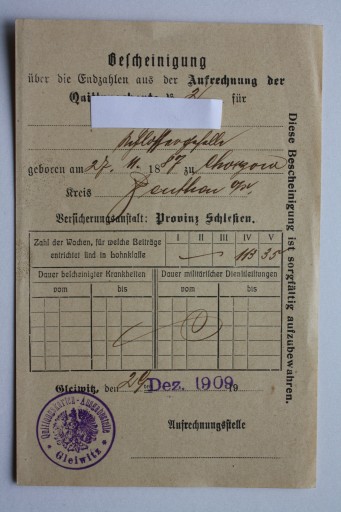 Bescheinigung
über die Endzahlen aus der Aufrechnung der
für
Schlossergeselle
geboren am 27. 11. 1887 zu Chorzow
Kreis Beuthen O/S.
Versicherungsanstalt: Provinz Schlesien.
Zahl der Wochen, für welche Beiträge
entrichtet und in Lohnklasse
I II III IV V
113 35
Dauer bescheinigter Krankheiten
Dauer militärischer Dienstleistungen
vom bis vom bis
Gleiwitz, den 29. Dez. 1909
Aufrechnungsstelle
Quittungskarten-Ausgabestelle
* Gleiwitz *
Diese Bescheinigung ist sorgfältig aufzubewahren.